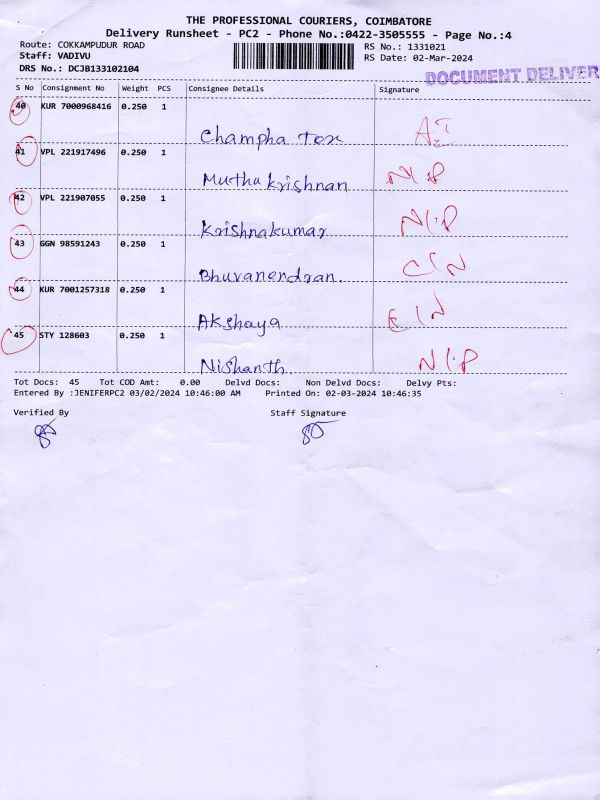 THE PROFESSIONAL COURIERS, COIMBATORE
Delivery Runsheet - PC2 - Phone No.:0422-3505555 - Page No.:4
Route: COKKAMPUDUR ROAD RS No.: 1331021
Staff: VADIVU RS Date: 02-Mar-2024
DRS No.: DCJB133102104
DOCUMENT DELIVER
S No Consignment No Weight PCS Consignee Details Signature
40 KUR 7000968416 0.250 1
Champha Tex
41 VPL 221917496 0.250 1
Muthukrishnan N/P
42 VPL 221907055 0.250 1
Krishnakumar N/P
43 GGN 98591243 0.250 1
Bhuvanendran.
44 KUR 7001257318 0.250 1
Akshaya
45 STY 128603 0.250 1
Nishanth. N/P
Tot Docs: 45 Tot COD Amt: 0.00 Delvd Docs: Non Delvd Docs: Delvy Pts:
Entered By :JENIFERPC2 03/02/2024 10:46:00 AM Printed On: 02-03-2024 10:46:35
Verified By Staff Signature